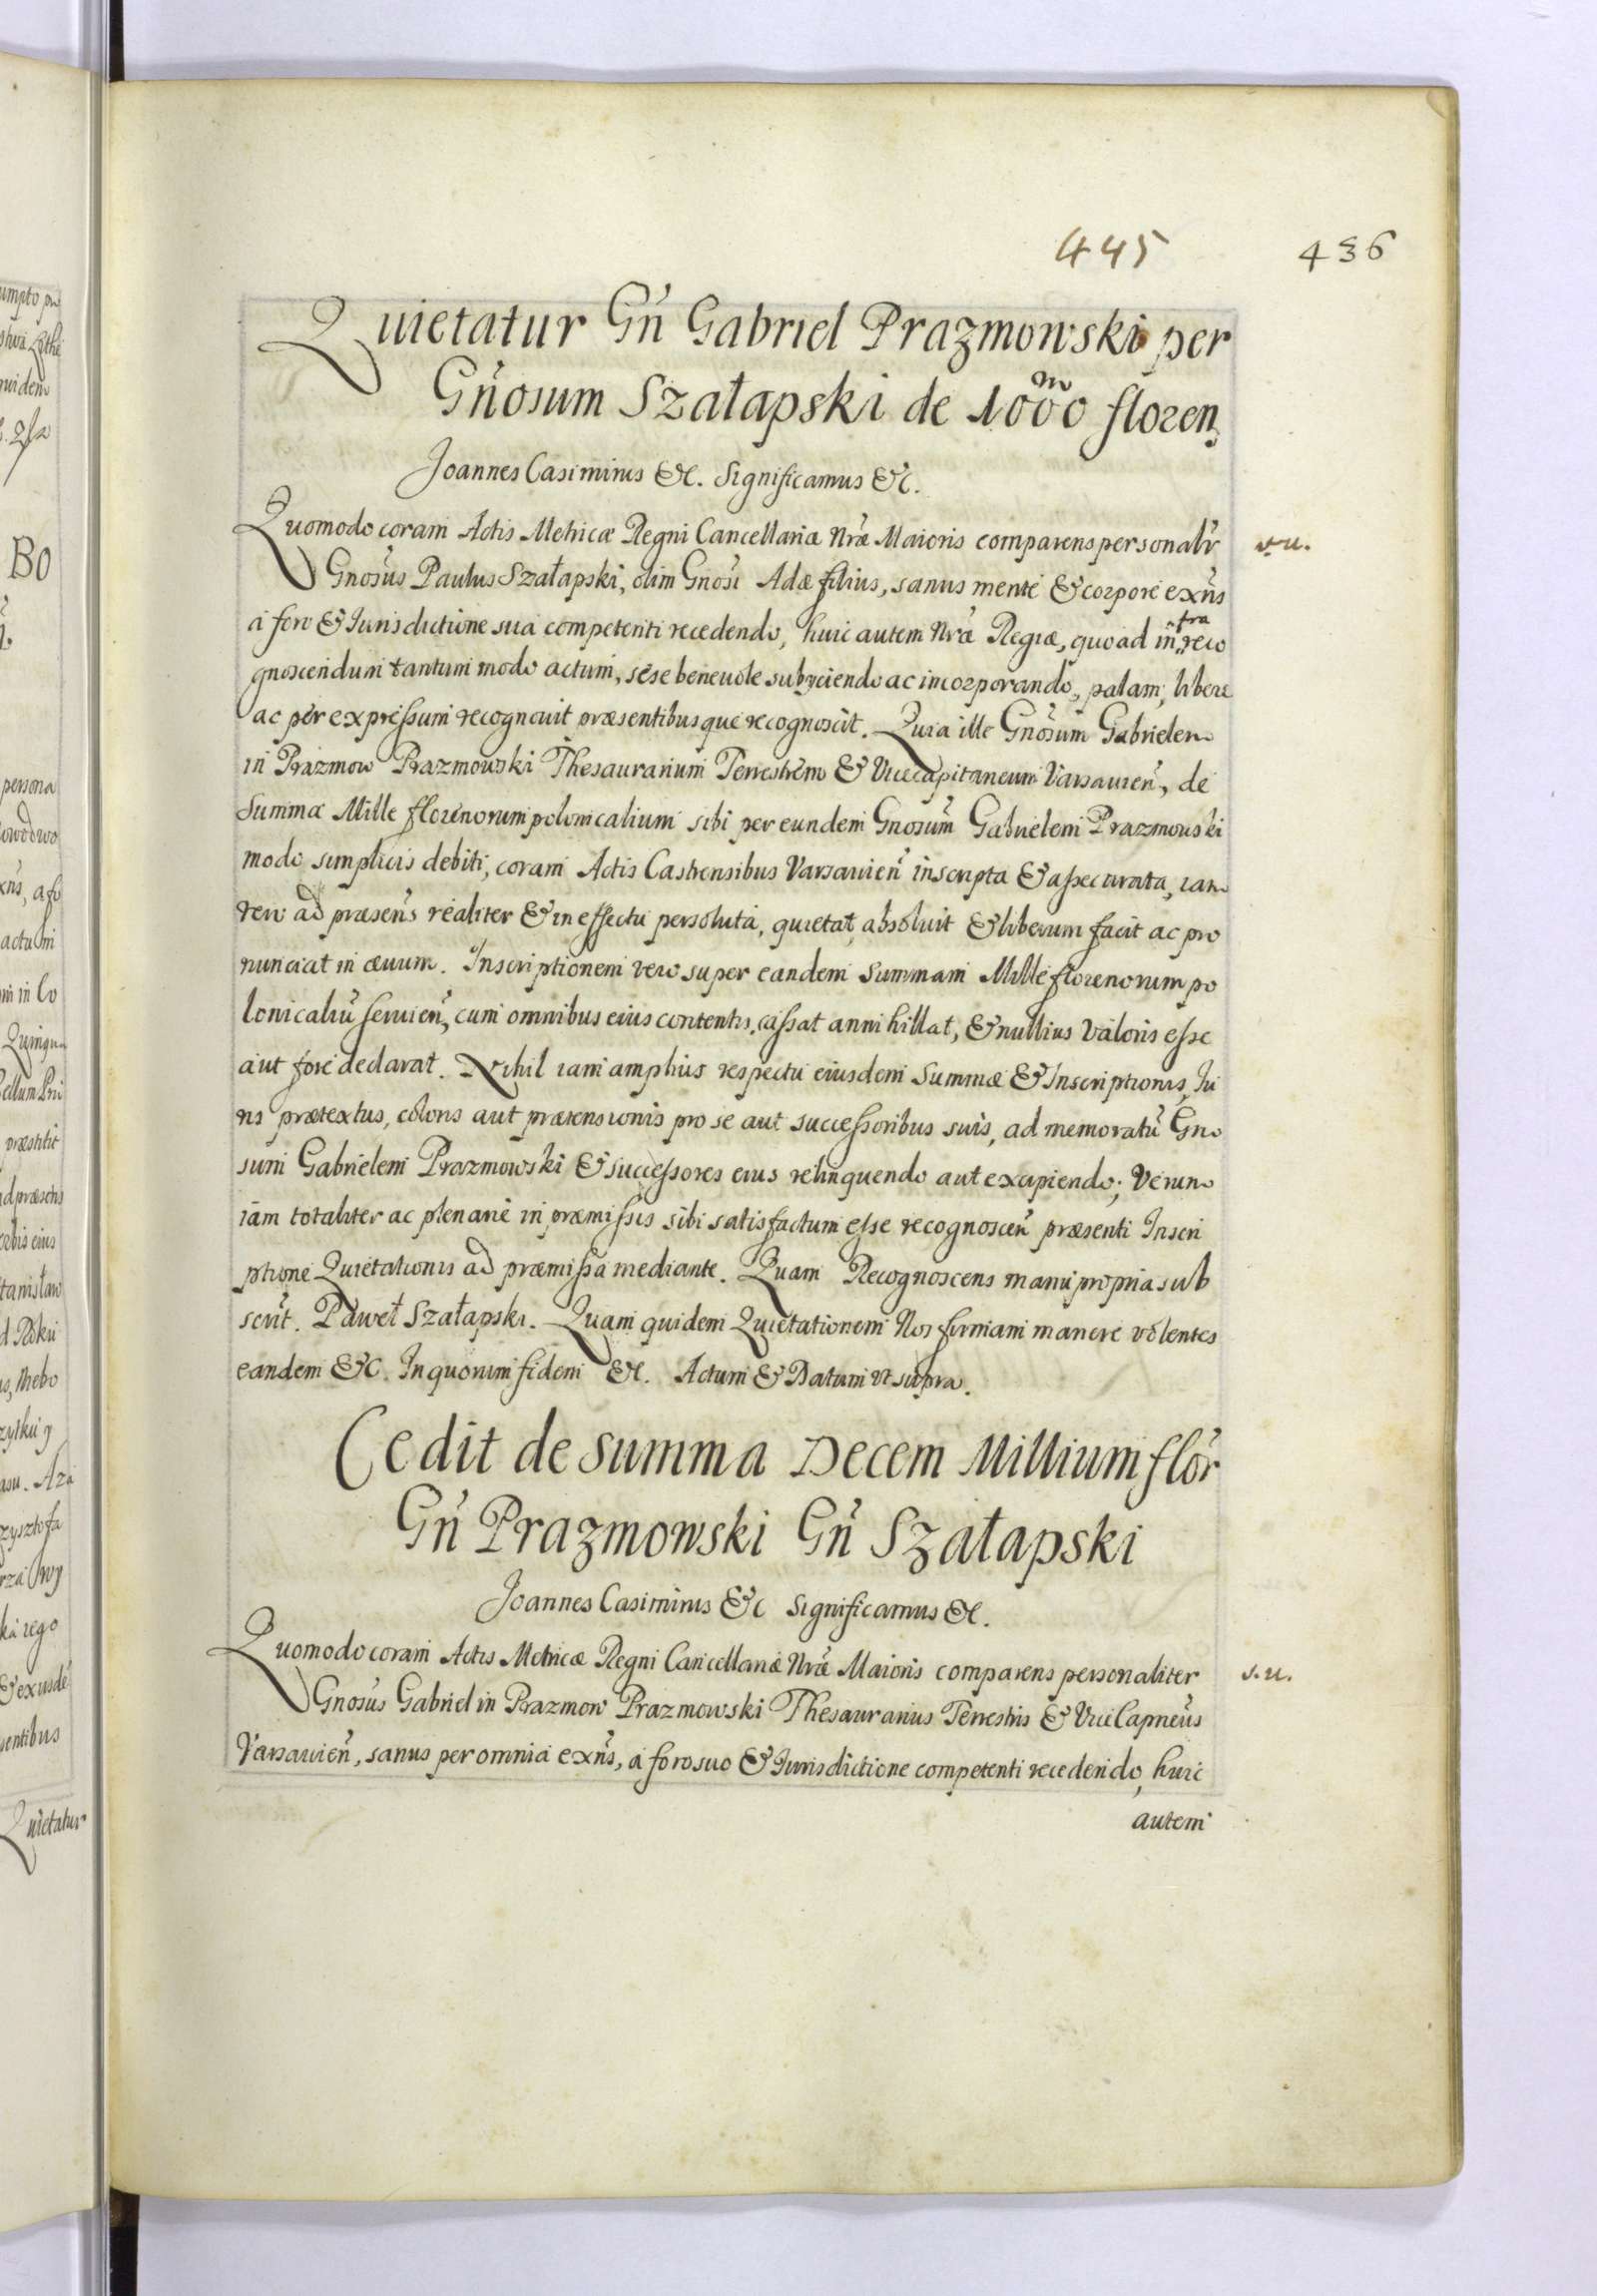 445 436
Quietatur Gn̄ Gabriel Prazmowski per
Gn̄osum Szałapski de 1000 floren
Joannes Casimirus &c. Significamus &c.
Quomodo coram Actis Metricæ Regni Cancellariæ Nræ Maioris comparens personalr̄ s. u.
Gnosus Paulus Szałapski, olim Gnosi Adæ filius, sanus mente & corpore exn̄s
á foro & Jurisdictione sua competenti recedendo, huic autem Nræ Regiæ, quoad infra reco
gnoscendum tantum modo actum, sese beneuole subyciendo ac incorporando, palam, libere
ac per expressum recognouit præsentibusque recognoscit. Quia ille Gnosum Gabrielem
in Prazmow Prazmowski Thesaurarium Terrestrem & Vicecapitaneum Varsauien̄, de
Summa Mille florenorum polonicalium sibi per eundem Gnosum Gabrielem Prazmowski
modo simplicis debiti, coram Actis Castrensibus Varsauien̄ inscripta & assecurata, iam
vero ad præsens realiter & in effectu persoluta, quietat, absoluit & liberum facit ac pro
nunciat in æuum. Inscriptionem vero super eandem Summam Mille florenorum po
lonicaliū seruien̄, cum omnibus eius contentis, cassat annihillat, & nullius valoris esse
aut fore declarat. Nihil iam amplius respectu eiusdem Summæ & Inscriptionis, Ju
ris prætextus, coloris aut prætensionis pro se aut successoribus suis, ad memoratū Gno
sum Gabrielem Prazmowski & successores eius relinquendo aut excipiendo; Verum
iam totaliter ac plenarie in præmissis sibi satisfactum esse recognoscen̄ præsenti Inscri
ptione Quietationis ad præmissa mediante. Quam Recognoscens manu propria sub
scrit. Paweł Szałapski. Quam quidem Quietationem Nos firmam manere volentes
eandem &c. In quorum fidem &c. Actum & Datum ut supra.
Cedit de summa Decem Millium flor̄
Gn̄ Prazmowski Gn̄ Szałapski
Joannes Casimirus &c Significamus &c.
Quomodo coram Actis Metricæ Regni Cancellariæ Nræ Maioris comparens personaliter s. u.
Gnosus Gabriel in Prazmow Prazmowski Thesaurarius Terrestris & ViceCapneus
Varsauien̄, sanus per omnia exn̄s, á foro suo & Jurisdictione competenti recedendo, huic
autem